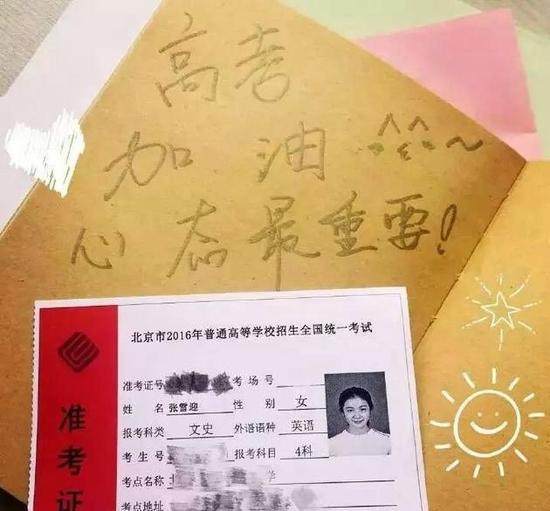 高考
加油
心态最重要!
北京市2016年普通高等学校招生全国统一考试
准考证
准考证号 考场号
姓名 张雪迎 性别 女
报考科类 文史 外语语种 英语
考生号 报考科目 4科
考点名称
考点地址